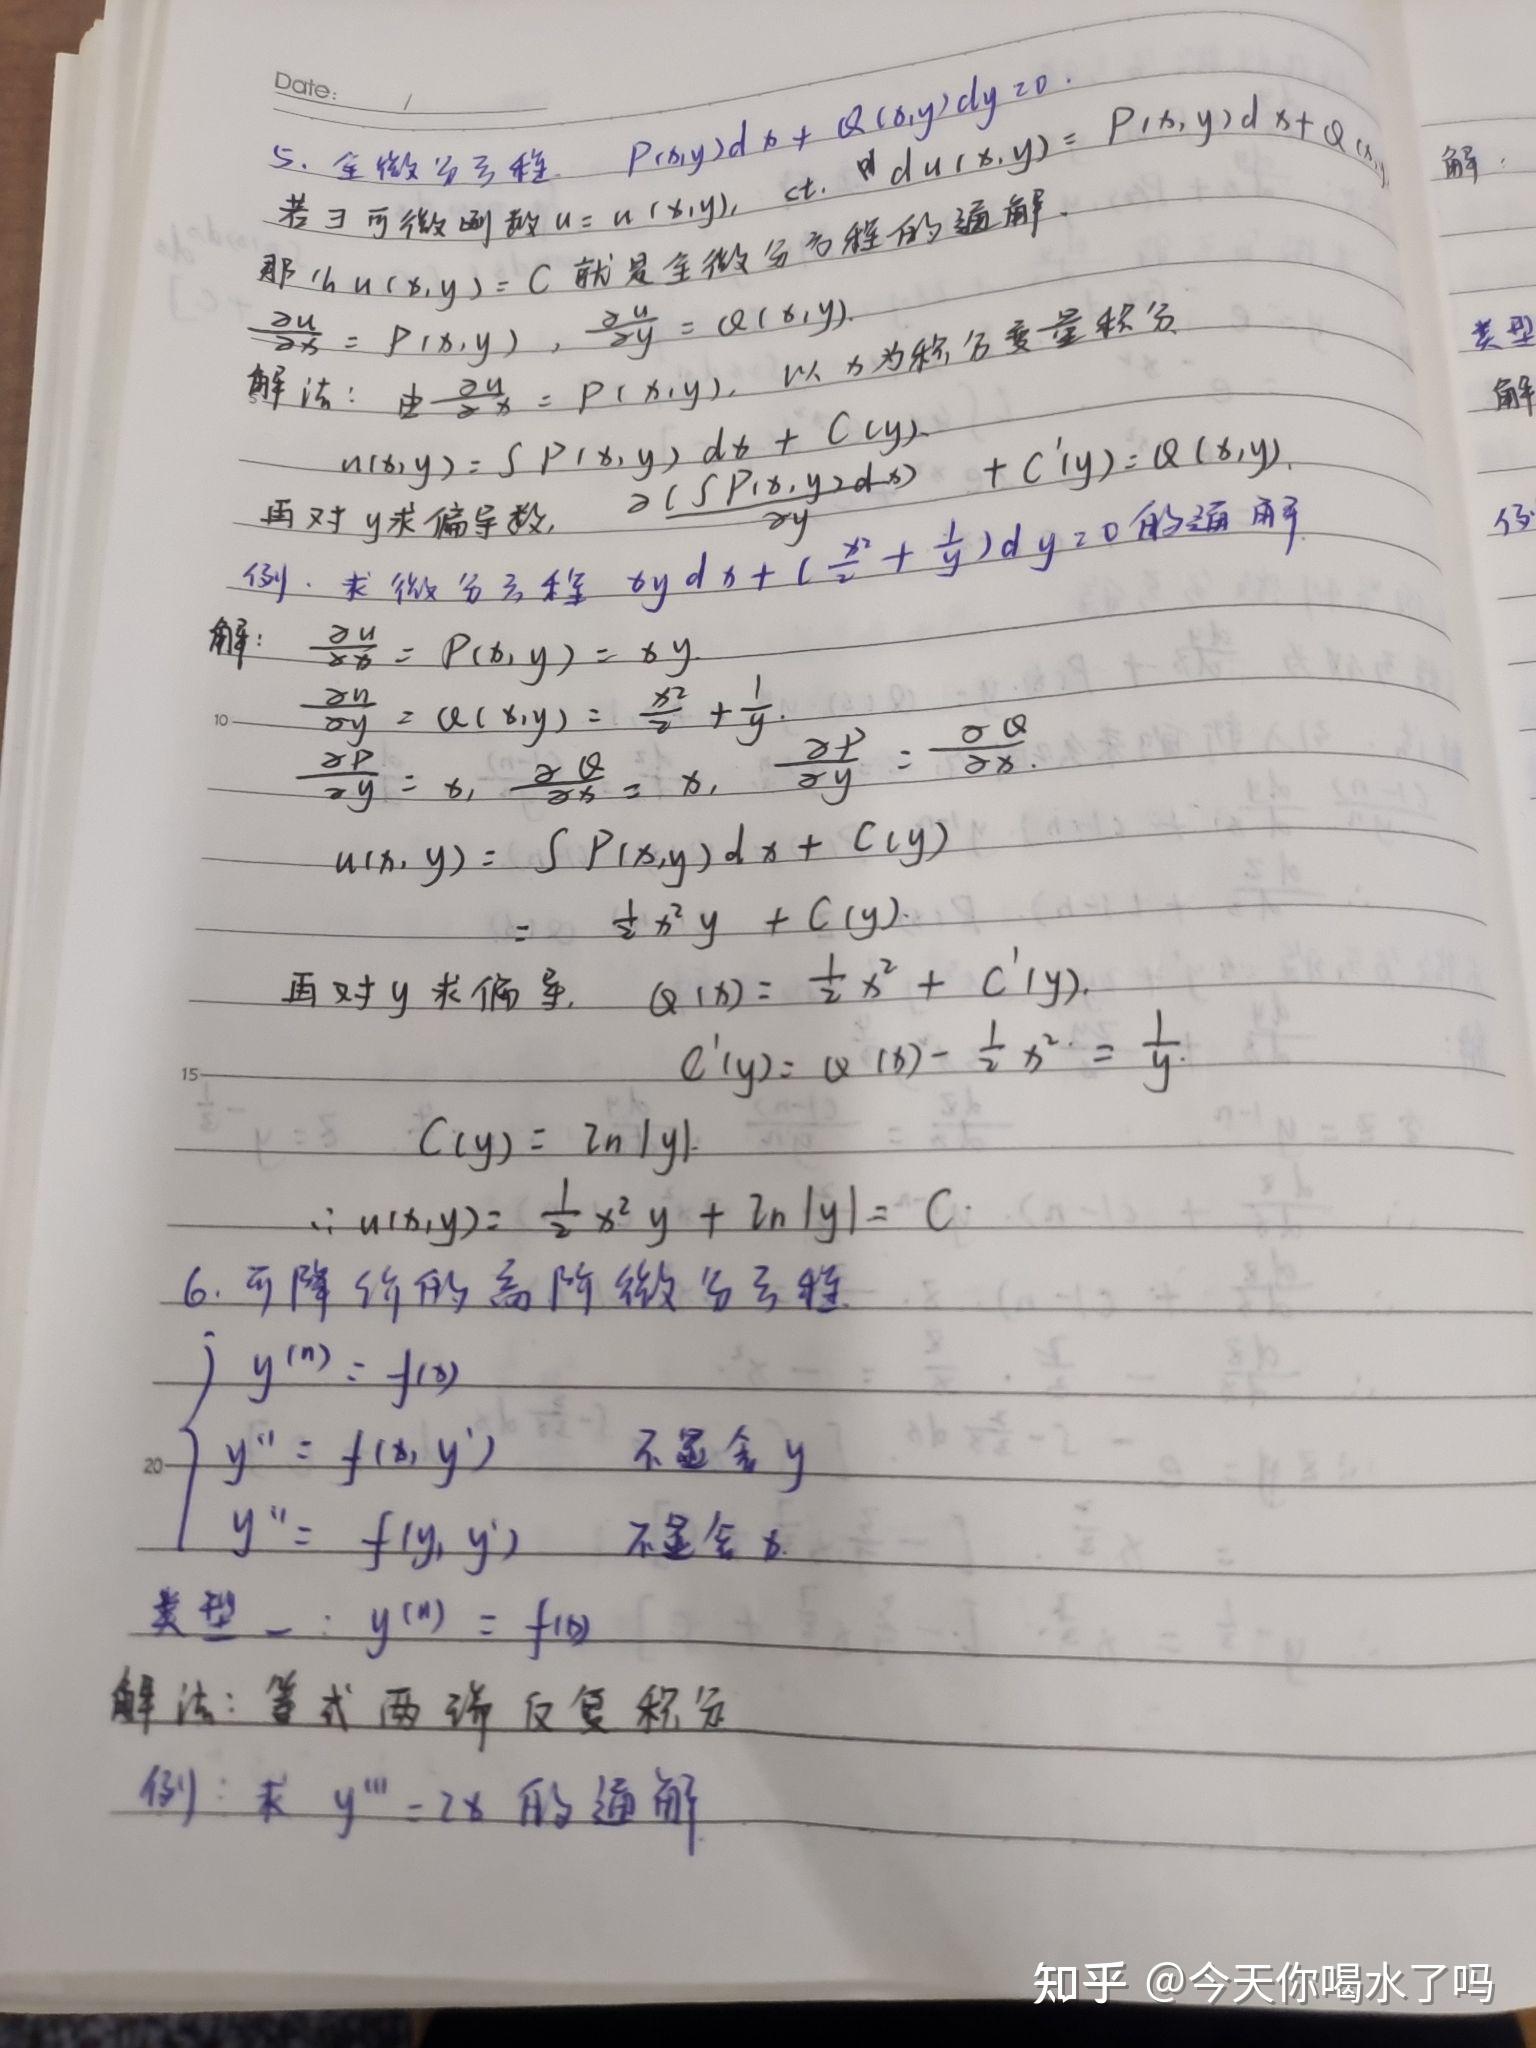 Date: /
5. 全微分方程. P(x,y)dx + Q(x,y)dy=0.
若∃可微函数u=u(x,y), st. du(x,y)= P(x,y)dx+Q(x,y)
那么u(x,y)=C 就是全微分方程的通解.
∂u/∂x = P(x,y), ∂u/∂y = Q(x,y).
解法: 由∂u/∂x = P(x,y), 以x为积分变量积分
u(x,y)=∫P(x,y)dx + C(y).
再对y求偏导数, ∂(∫P(x,y)dx)/∂y + C'(y)=Q(x,y).
例. 求微分方程 xydx+(x²/2 + 1/y)dy=0的通解
解: ∂u/∂x = P(x,y) = xy.
10
∂u/∂y = Q(x,y) = x²/2 + 1/y.
∂P/∂y = x, ∂Q/∂x = x, ∂P/∂y = ∂Q/∂x.
u(x,y)=∫P(x,y)dx + C(y)
= ½x²y + C(y).
再对y求偏导. Q(x)= ½x² + C'(y).
15
C'(y)= Q(x)- ½x² = 1/y.
C(y)= ln|y|.
∴u(x,y)= ½x²y + ln|y|= C.
6. 可降价的高阶微分方程
y⁽ⁿ⁾ = f(x)
20
y''= f(x,y') 不显含y
y''= f(y,y') 不显含x.
类型一: y⁽ⁿ⁾ = f(x)
解法: 等式两端反复积分
例: 求 y'''=2x 的通解
解:
类型
解
例
知乎 @今天你喝水了吗